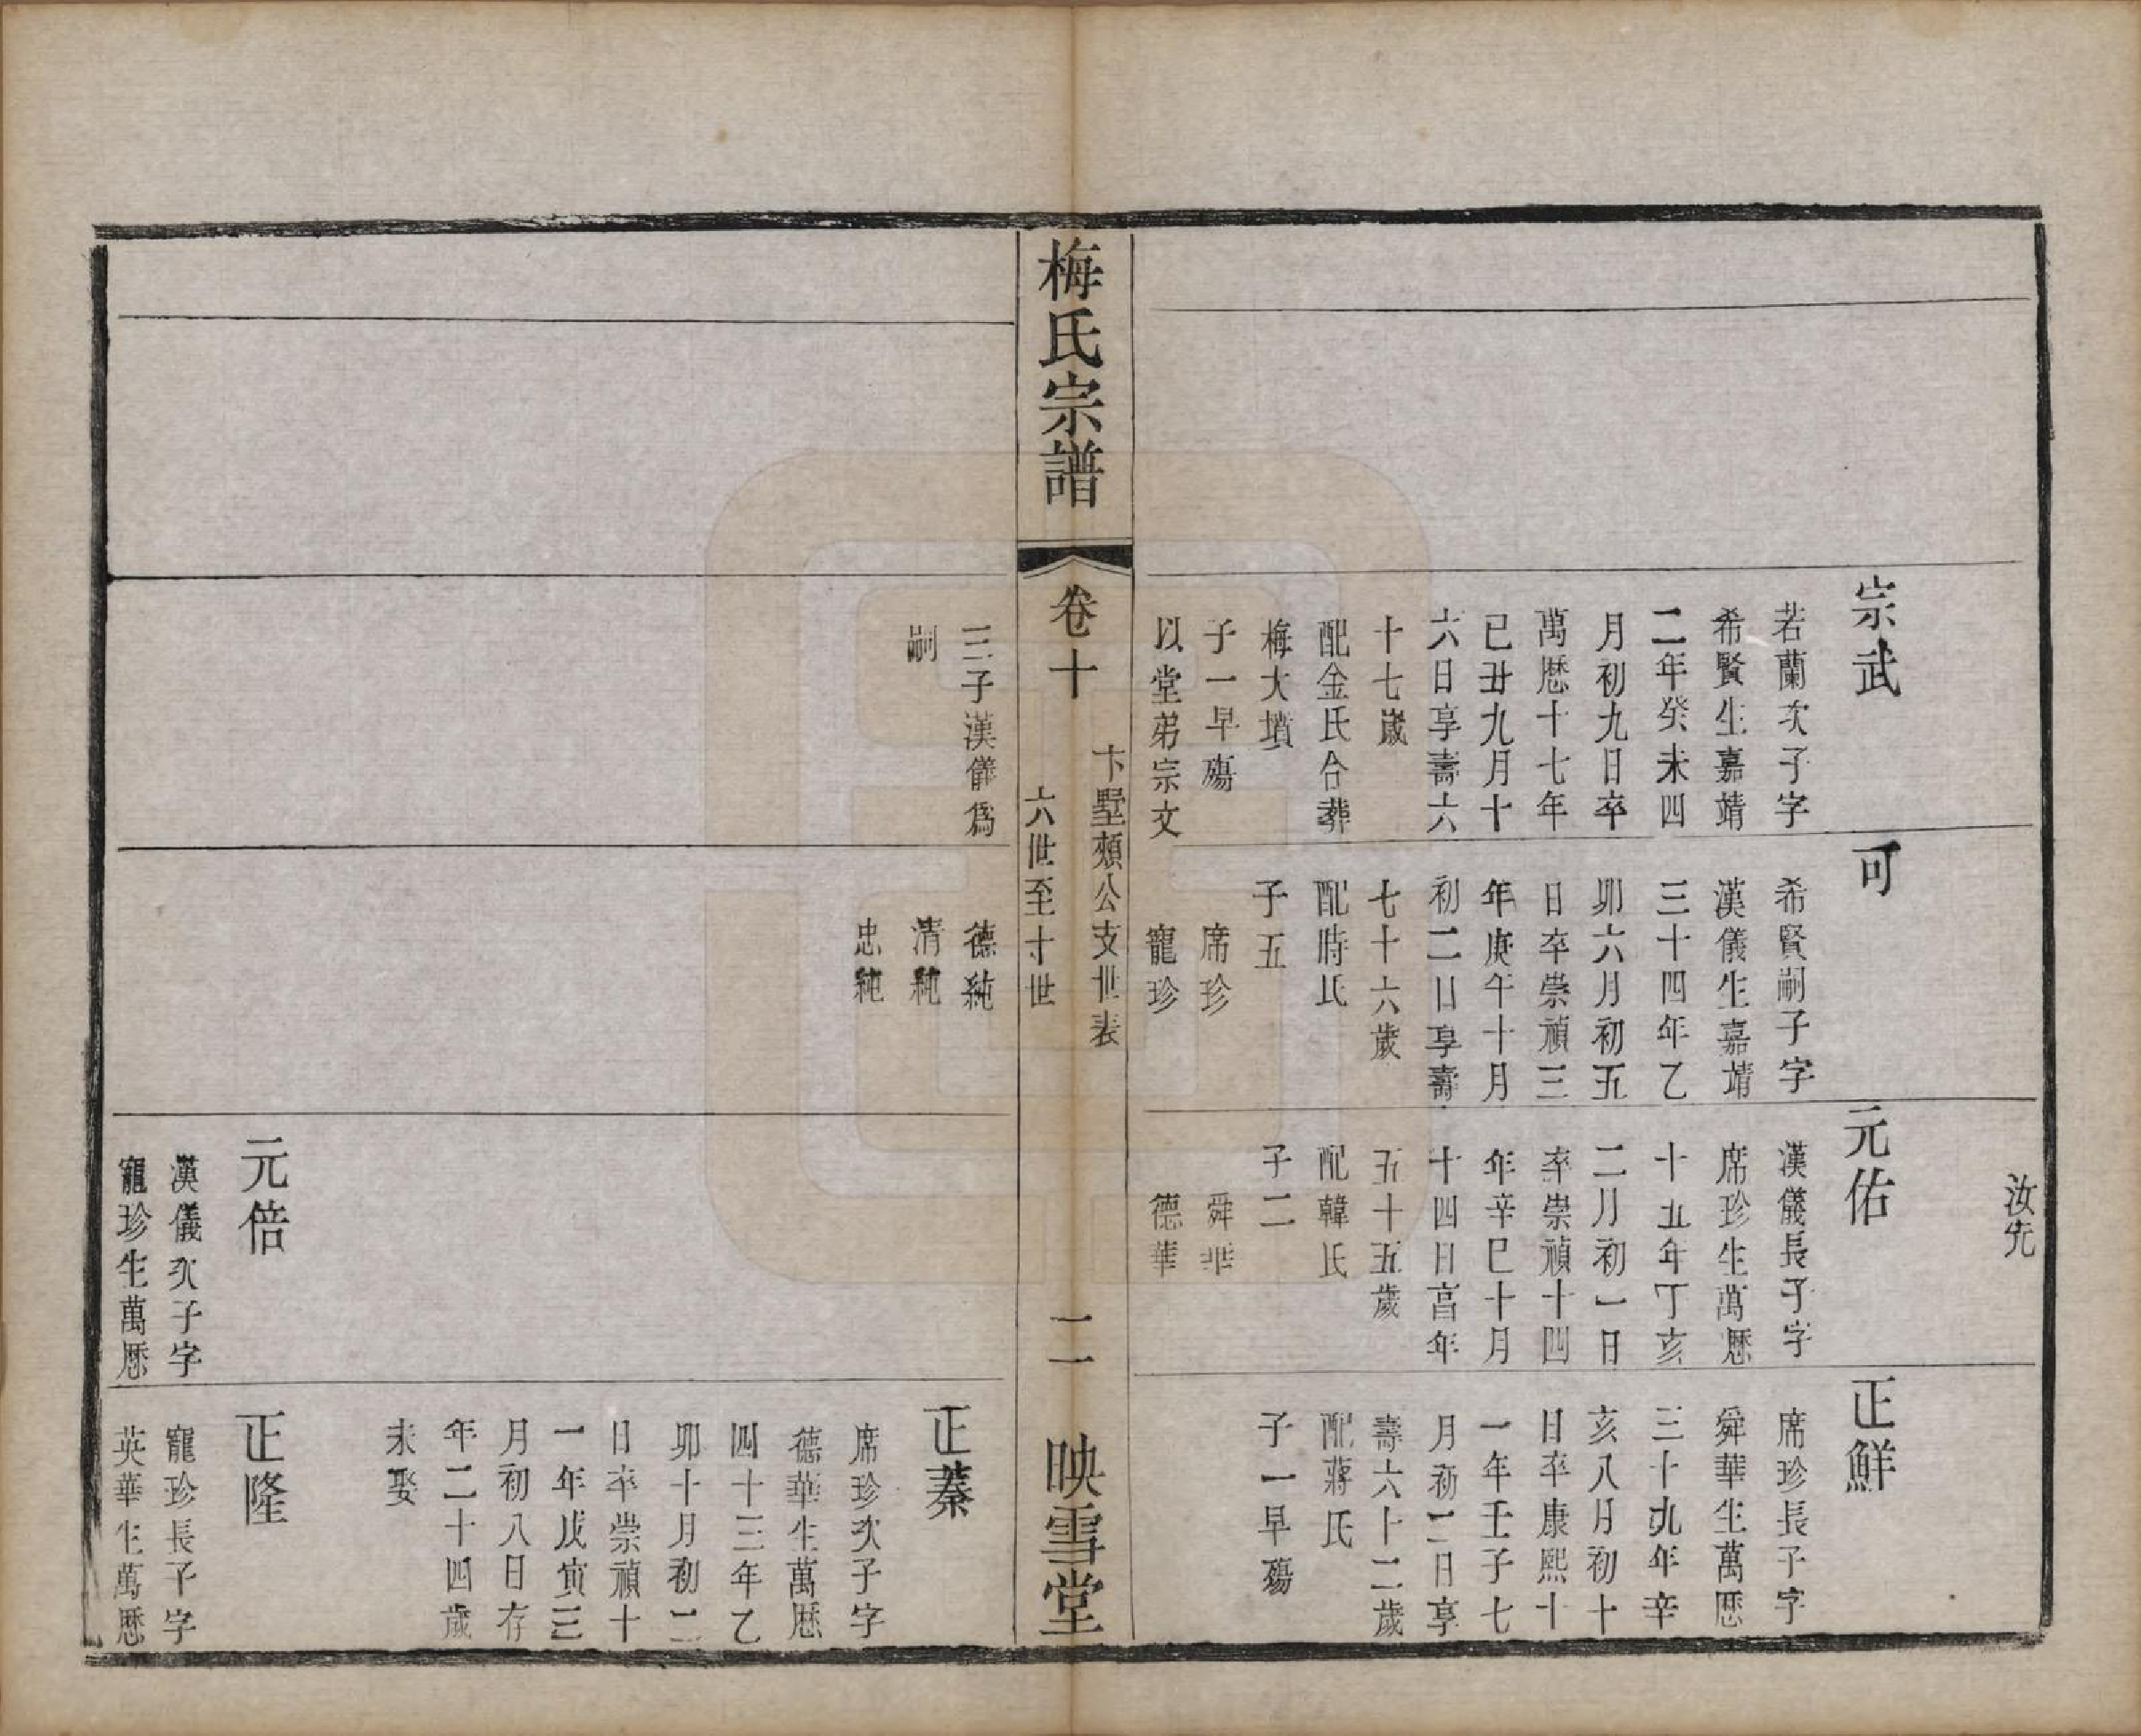 宗武
若蘭次子字
希賢生嘉靖
二年癸未四
月初九日卒
萬厯十七年
己丑九月十
六日享壽六
十七歲
配金氏合葬
梅大墳
子一早殤
以堂弟宗文
可
希賢嗣子字
漢儀生嘉靖
三十四年乙
卯六月初五
日卒崇禎三
年庚午十月
初二日享壽
七十六歲
配時氏
子五
席珍
寵珍
汝先
元佑
漢儀長子字
席珍生萬厯
十五年丁亥
二月初一日
卒崇禎十四
年辛巳十月
十四日享年
五十五歲
配韓氏
子二
舜華
德華
正鮮
席珍長子字
舜華生萬厯
三十九年辛
亥八月初十
日卒康熙十
一年壬子七
月初二日享
壽六十二歲
配蔣氏
子一早殤
梅氏宗譜
卷十
卞墅頮公支世表
六世至十世
二
映雪堂
三子漢儀爲
嗣
德純
清純
忠純
正蓁
席珍次子字
德華生萬厯
四十三年乙
卯十月初二
日卒崇禎十
一年戊寅三
月初八日存
年二十四歲
未娶
元倍
漢儀次子字
寵珍生萬厯
正隆
寵珍長子字
英華生萬厯